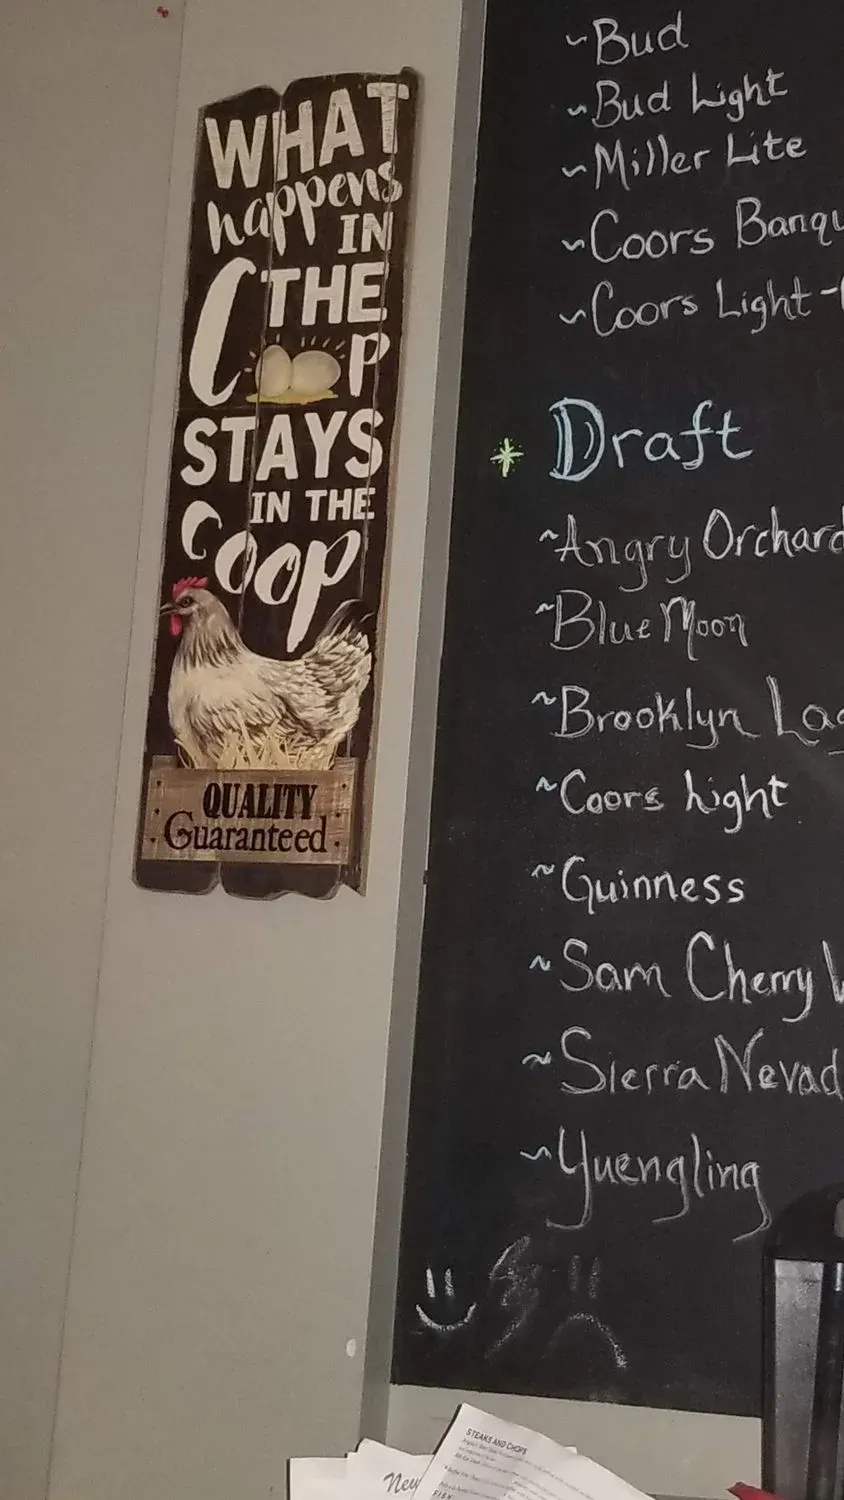 WHAT
happens
IN
THE
C P
STAYS
IN THE
Coop
QUALITY
Guaranteed
~Bud
~Bud Light
~Miller Lite
~Coors Banqu
~Coors Light-
* Draft
~Angry Orchard
~Blue Moon
~Brooklyn Lag
~Coors Light
~Guinness
~Sam Cherry W
~Sierra Nevad
~Yuengling
STEAKS AND CHOPS
New
FISH